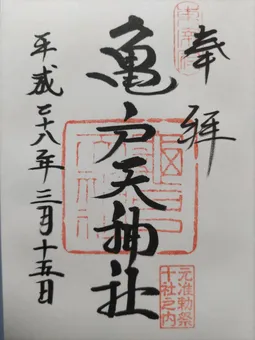 奉拝
亀戸天神社
平成二十八年三月十五日
元准勅祭
十社之内